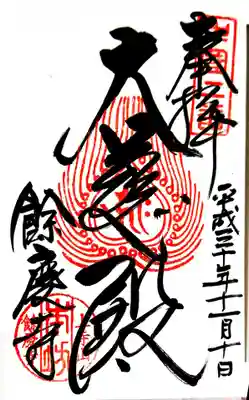 奉拝
平成二十年十一月十日
大悲殿
餘慶寺